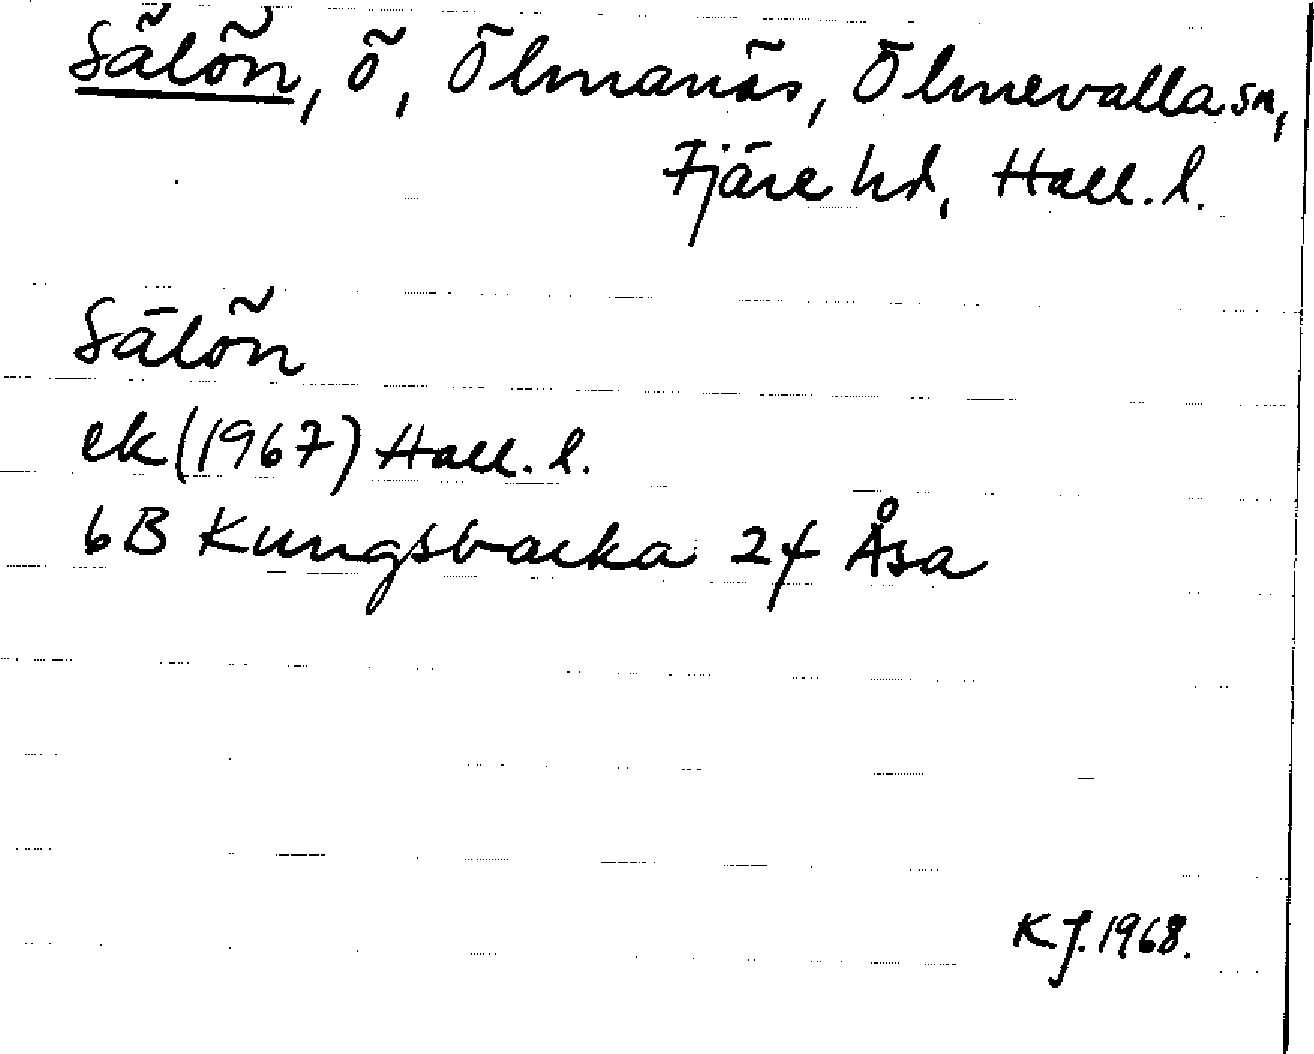 Sälön, ö, Ölmanäs, Ölmevalla sn,
Fjäre hd, Hall. l.
Sälön
ek (1967) Hall. l.
6B Kungsbacka 2f Åsa
KJ. 1968.